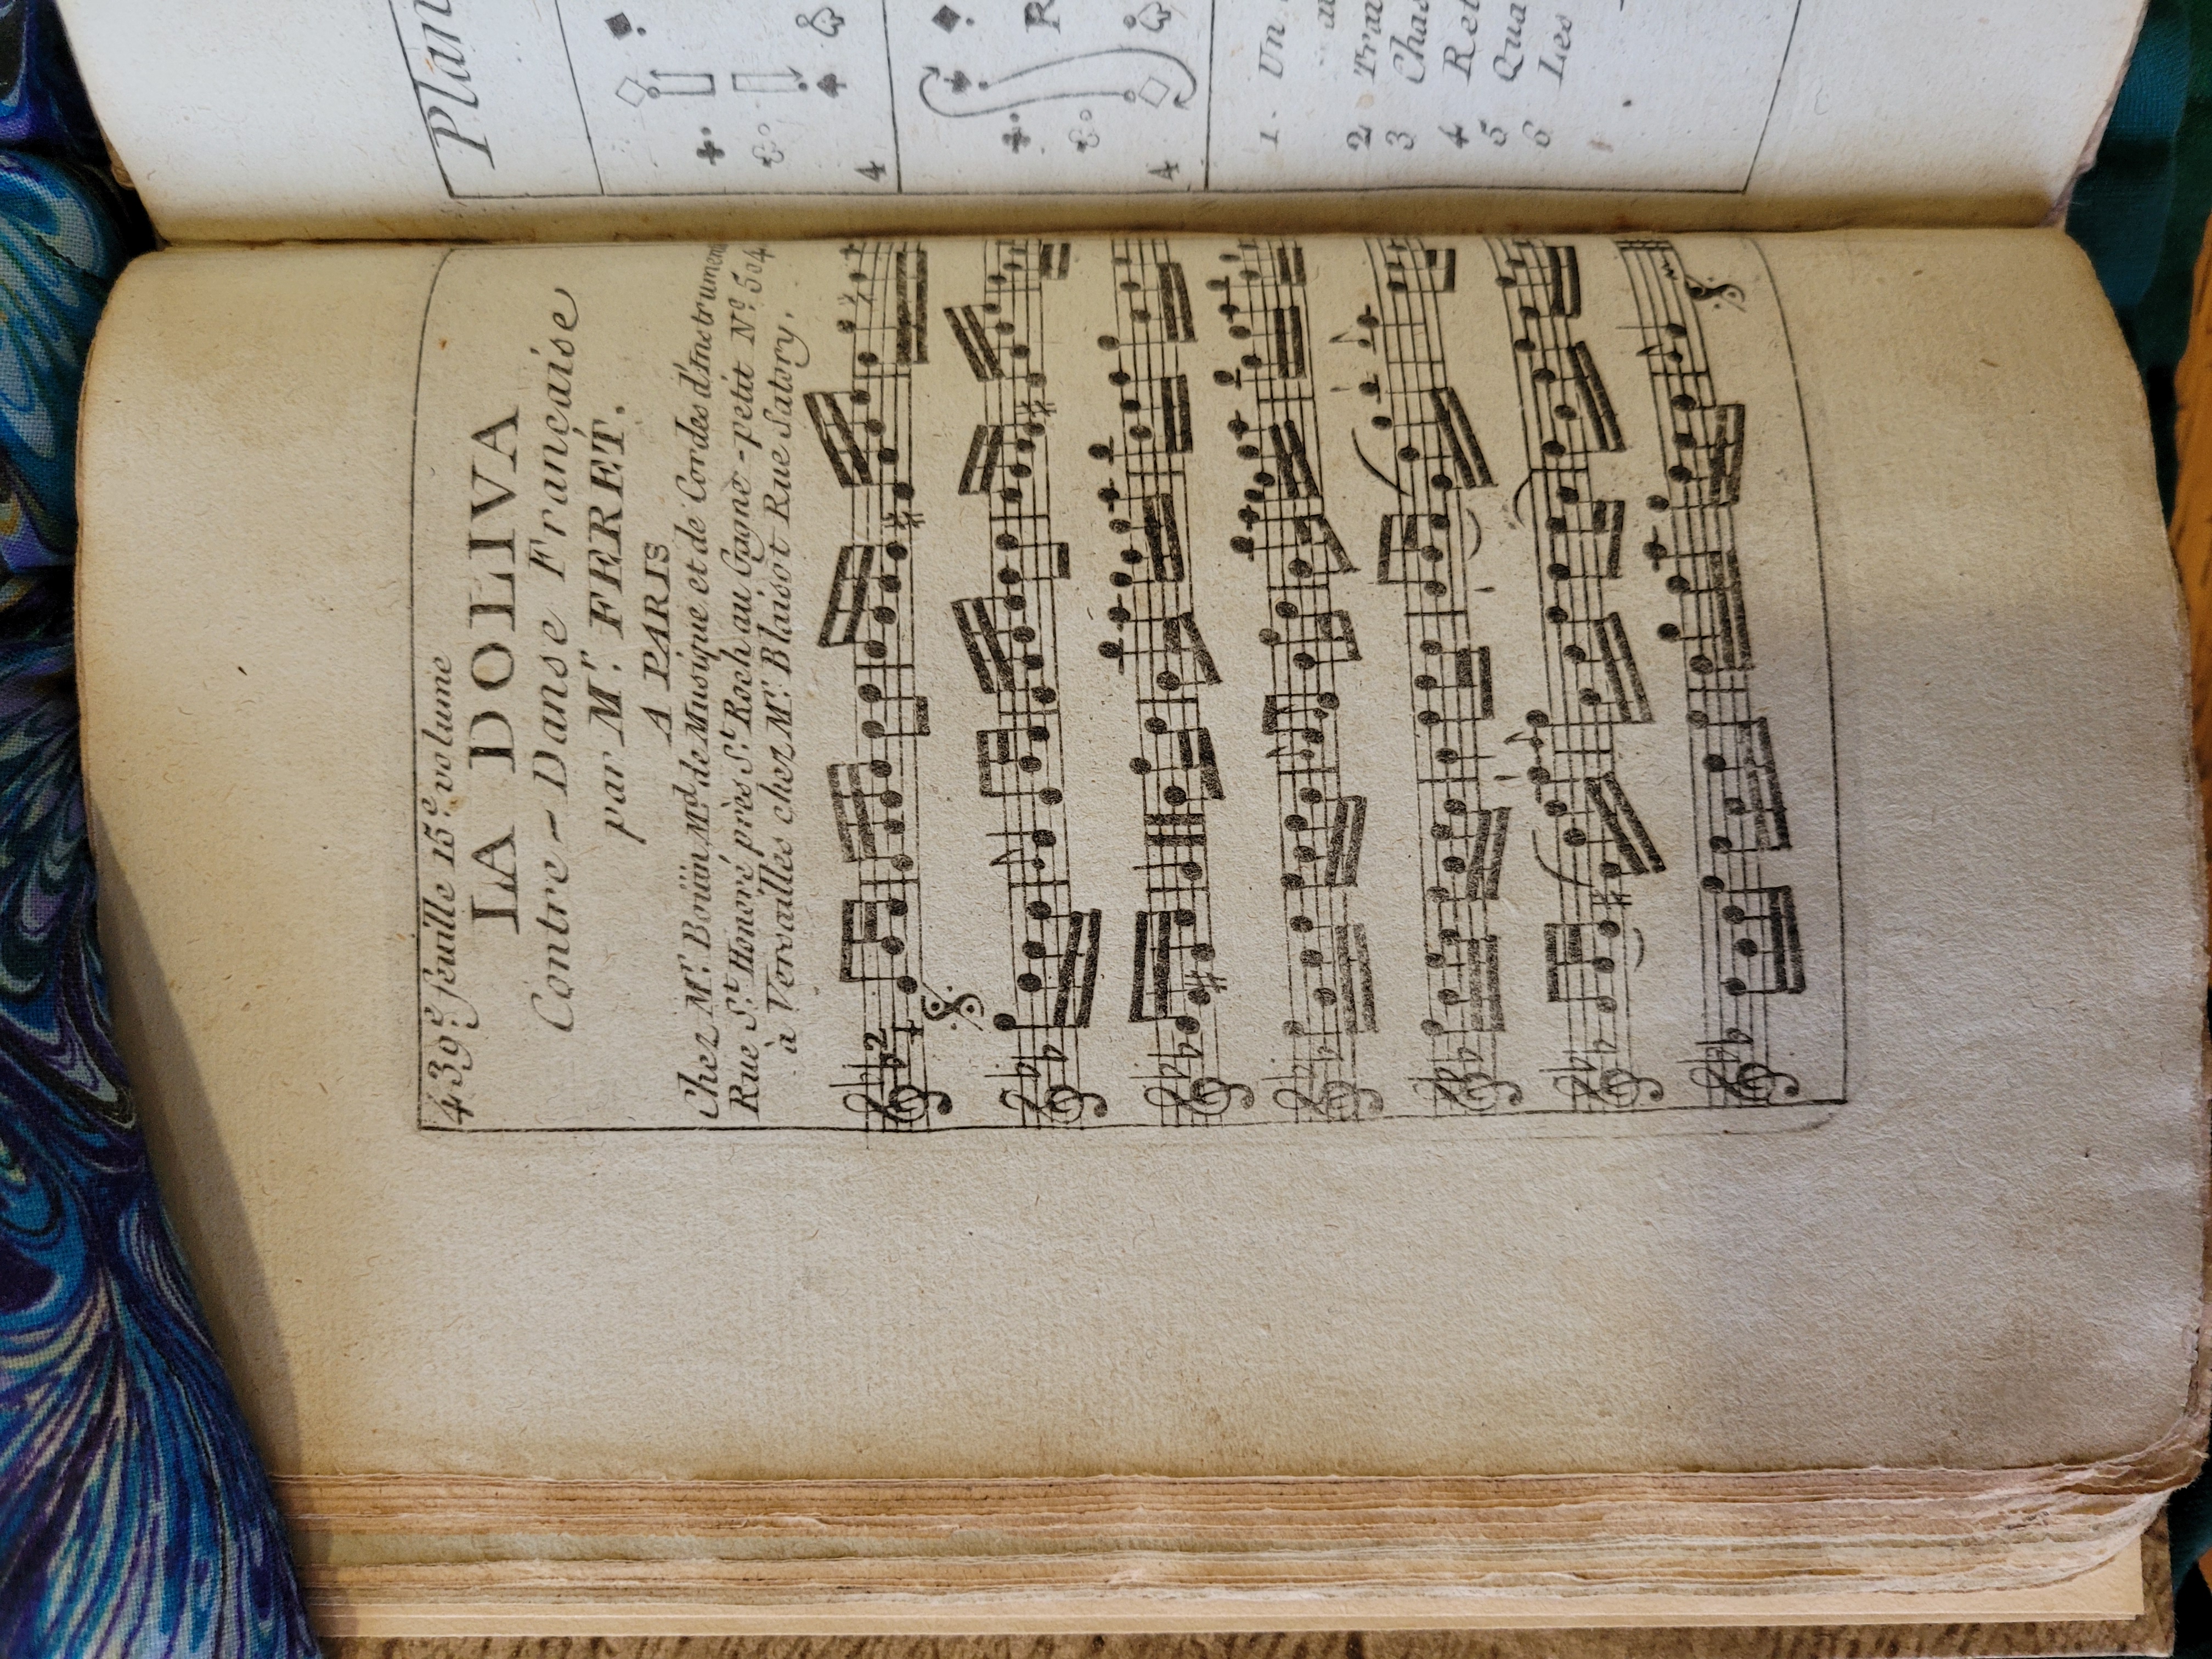 439.e feuille 15.e volume
LA DOLIVA
Contre-Danse Française
par M.r FERET.
A PARIS
Chez M.r Boüin M.d de Musique et de Cordes d'Instrument
Rue S.t Honoré près S.t Roch au Gagne-petit N.o 504
à Versailles chez M.r Blaisot Rue Satory.
2
4
4
R
4
1. Un
2
3
4
5 Qua
6 Les